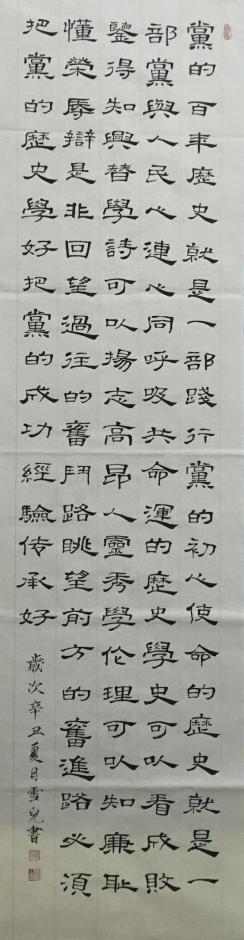 黨的百年歷史就是一部踐行黨的初心使命的歷史就是一
部黨與人民心連心同呼吸共命運的歷史學史可以看成敗
鑒得知興替學詩可以揚志高昂人靈秀學伦理可以知廉恥
懂榮辱辯是非回望過往的奮鬥路眺望前方的奮進路必須
把黨的歷史學好把黨的成功經驗传承好
歲次辛丑夏月雪兒書